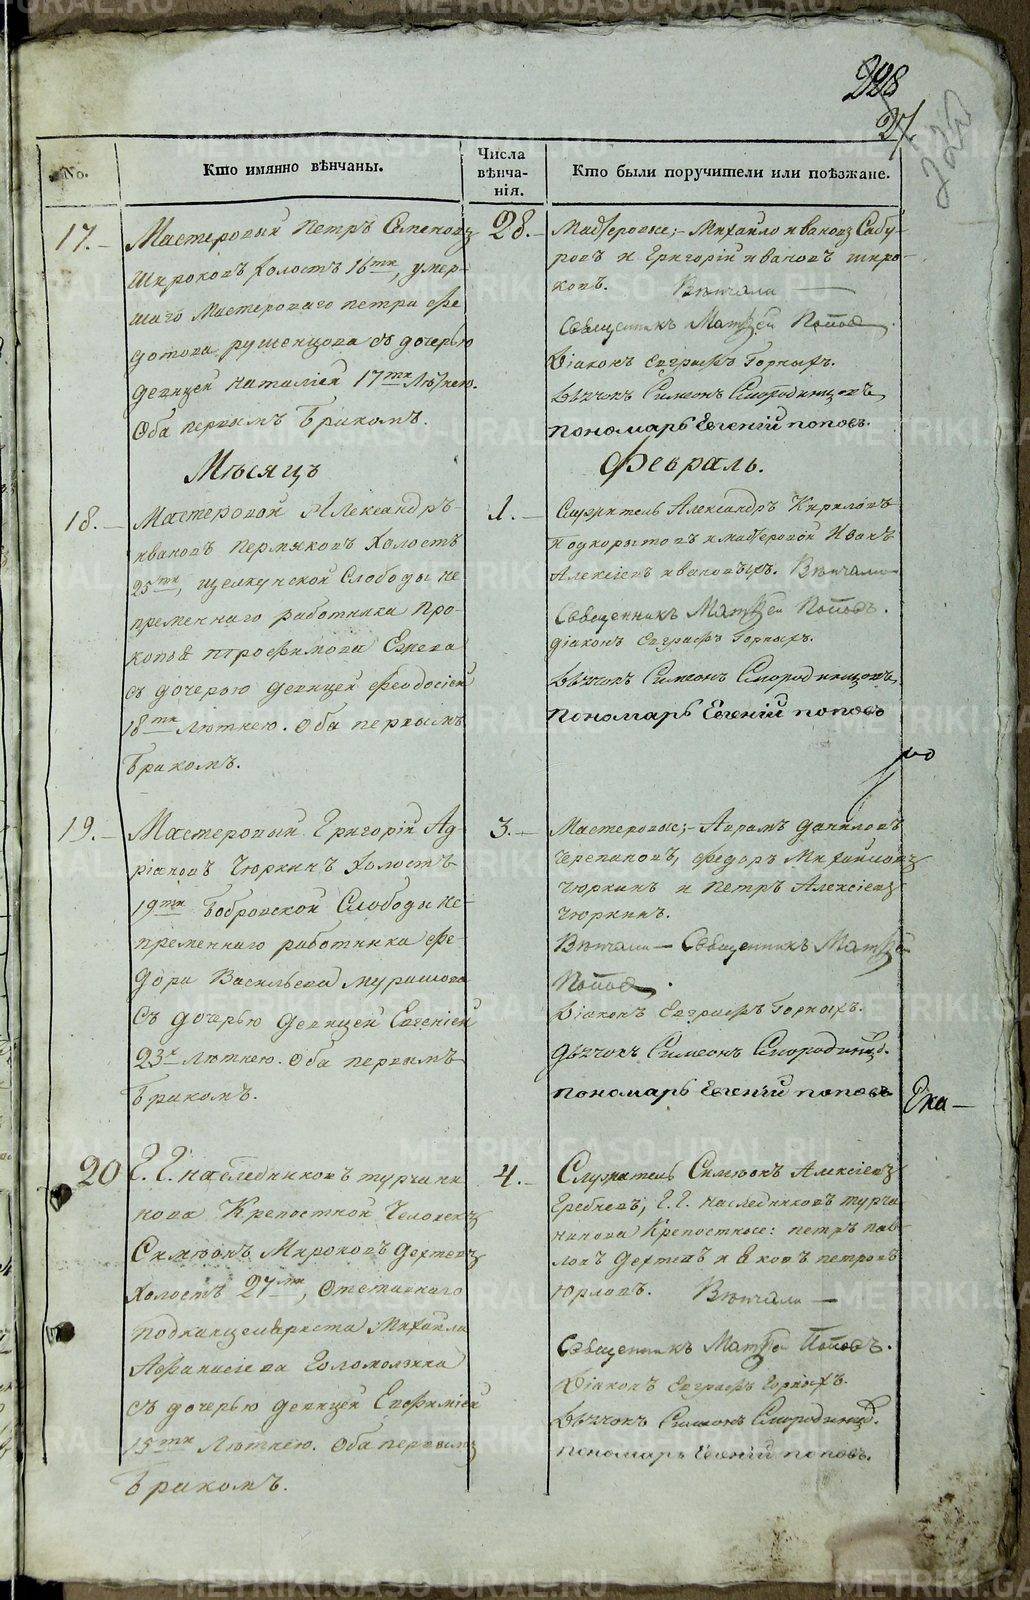 228
27.
226
No.
Кто имянно вѣнчаны.
Числа вѣнча-
нія.
Кто были поручители или поѣзжане.
17.-
Мастеровый Петръ Семеновъ
Широковъ холостъ 16ти, умер-
шаго Мастероваго Петра Фе
дотова съ дочерью
девицей Наталіей 17ти Лѣтнею.
Оба первымъ Бракомъ.
28.-
Мастеровые;- Михайло Ивановъ Сабу-
ровъ и Григорій Ивановъ Широ-
ковъ. Вѣнчали —
Священникъ Матѳей Поповъ.
Діаконъ Евграфъ Горныхъ.
Дьячокъ Симеонъ Смородинцовъ,
пономарь Евгеній поповъ.
Мѣсяцъ
Февраль.
18.-
Мастеровой Александръ
Ивановъ Пермяковъ Холостъ
25ти, Щелкунской Слободы не
пременнаго работника Про-
копья Трофимова Ежева
съ дочерью девицей Феодосіей
18ти Лѣтнею. Оба первымъ
Бракомъ.
1.-
Служитель Александръ Кириловъ
Подкорытовъ и мастеровой Иванъ
Алексіевъ Ивановыхъ. Вѣнчали
Священникъ Матѳей Поповъ.
діаконъ Евграфъ Горныхъ.
Дьячокъ Симеонъ Смородинцовъ,
пономарь Евгеній поповъ
19.-
Мастеровый Григорій Ад-
ріановъ Чюркинъ Холостъ
19ти Бобровской Слободы не-
пременнаго работника Фе-
дора Васильева Мурашова
съ дочерью девицей Евгеніей
23х Лѣтнею. Оба первымъ
Бракомъ.
3.-
Мастеровые;- Аврамъ Даниловъ
Черепановъ, Федоръ Михайловъ
Чюркинъ и Петръ Алексіевъ
Чюркинъ.
Вѣнчали — Священникъ Матѳей
Поповъ.
Діаконъ Евграфъ Горныхъ.
Дьячокъ Симеонъ Смородинцов.
пономарь Евгеній поповъ
Ека—
20
Г. Г. наследниковъ Турчани
нова Крепостной Человекъ
Симеонъ Мироновъ Дехтевъ
Холостъ 27ми, Отставнаго
подканцеляриста Михаила
Афанасіева Голомолзина
съ дочерью девицей Евфиміей
15ти Лѣтнею. Оба первымъ
Бракомъ.
4.-
Служитель Симеонъ Алексіевъ
Гребневъ, Г. Г. наследниковъ Турча
нинова Крепостные: Петръ Пав-
ловъ Дехтевъ и Яковъ Петровъ
Юрловъ. Вѣнчали —
Священникъ Матѳей Поповъ.
Діаконъ Евграфъ Горныхъ.
Дьячокъ Симеонъ Смородинцов.
пономарь Евгеній поповъ.
METRIKI.GASO-URAL.RU